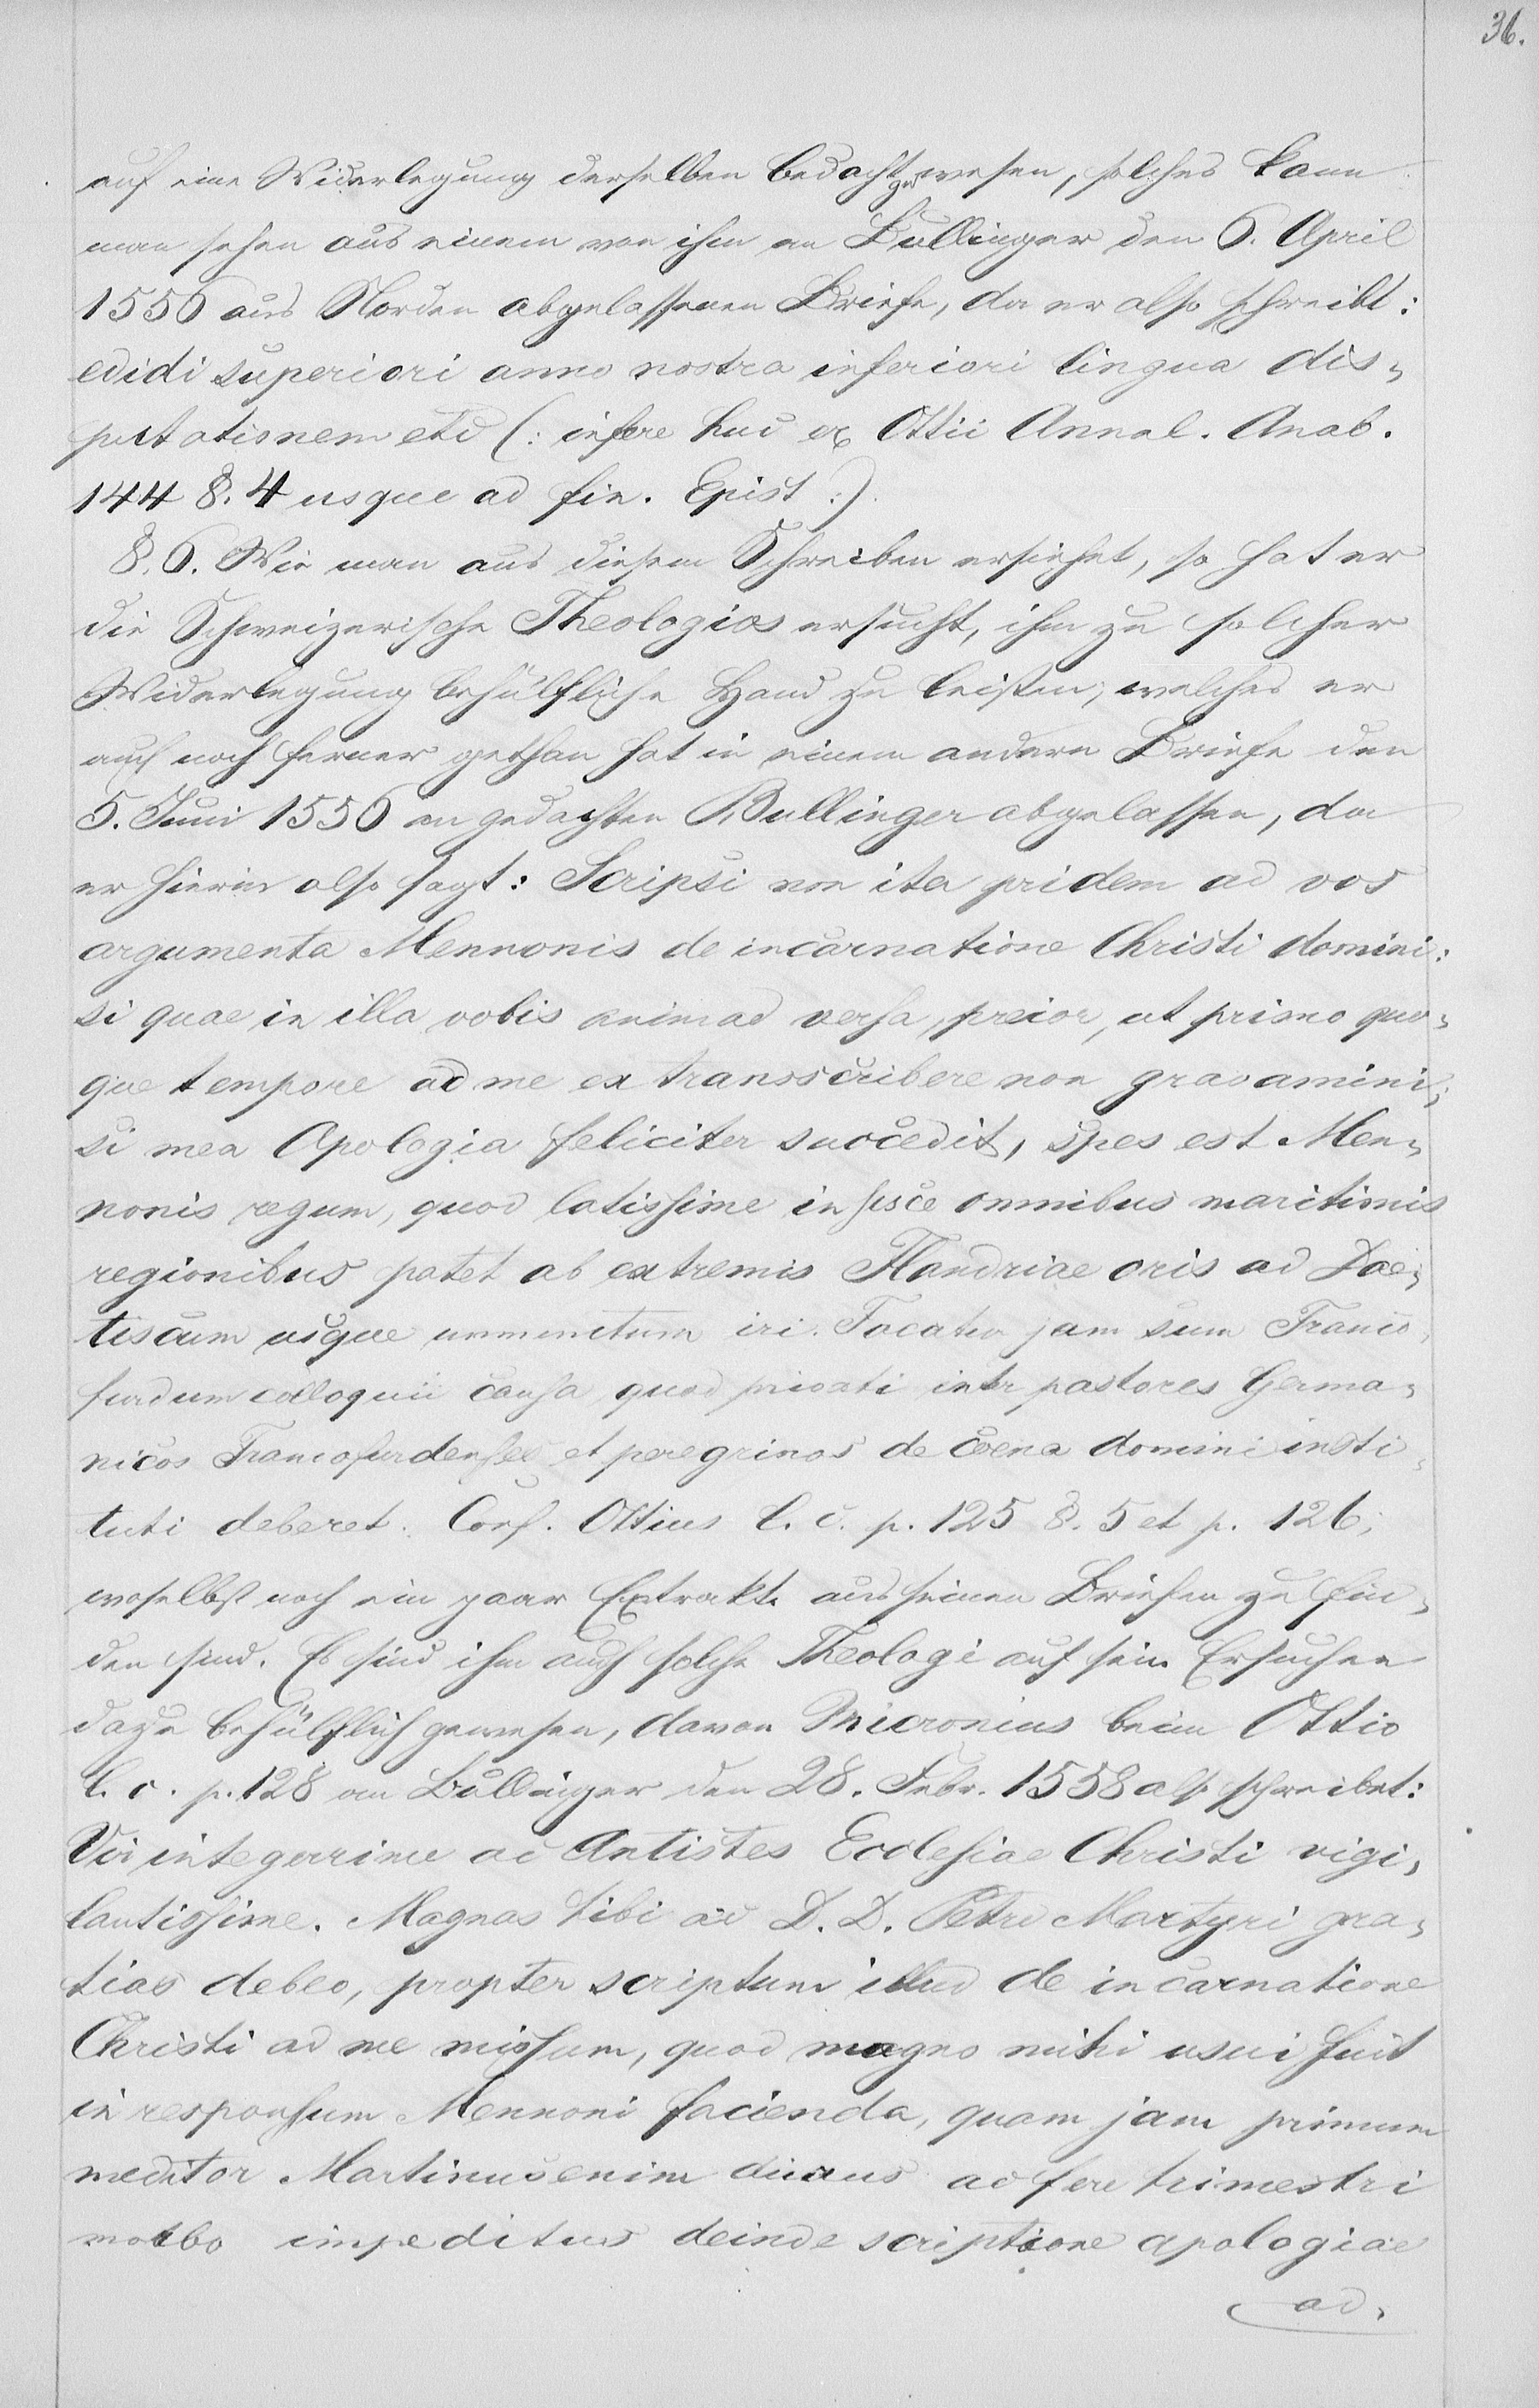 36.
auf eine Widerlegung derselben bedacht gewesen, solches kann
man sehen aus einem von ihm an Bullinger den 6. April
1556 aus Norden abgelassenen Briefe, da er also schreibt:
edidi superiori anno nostra inferiori lingua dis-
putationem etc (: insere huc ex Ottii Annal. Anab.
144 §. 4 usque ad fin. Epist :).
§. 6. Wie man aus diesem Schreiben ersiehet, so hat er
die Schweizerische Theologios ersucht, ihm zu solcher
Widerlegung behülfliche Hand zu leisten, welches er
auch noch ferner gethan hat in einem andern Briefe den
5. Juni 1556 an gedachten Bullinger abgelassen, da
er hierin also sagt: Scripsi non ita pridem ad vos
argumenta Mennonis de incarnatione Christi domini:
si quae in illa vobis animad versa, precor, ut primo quo-
que tempore ad me ex transscribere non gravamini;
si mea Apologia feliciter succedit, spes est Men-
nonis regum, quod latissime in hisce omnibus maritimis
regionibus patet ab extremis Flandriae oris ad Dae-
tiscum usque immunitum iri. Vocatur jam sum Franco-
furdum colloquii causa quod privati inter pastores Germa-
nicos Francofurdenses et peregrinos de coena domini insti-
tuti deberet. Conf. Ottius l. c. p. 125 §. 5 et p. 126;
woselbst noch ein paar Extrakte aus seinen Briefen zu fin-
den sind. Es sind ihm auch solche Theologi auf sein Ersuchen
dazu behülflich gewesen, davon Micronius beim Ottio
l. c. p. 128 an Bullinger den 28. Febr. 1558 also schreibet:
Vir integerrime ac Antistes Ecclesiae Christi vigi-
lantissime. Magnas tibi ac D. D. Petro Martyri gra-
tias debeo, propter scriptum illud de incarnatione
Christi ad me missum, quod magno mihi usui fuit
in responsum Mennoni facienda, quam jam primum
meditor Martinus enim ac fere trimestri
motbo impeditus deinde scriptione apologiae
ad-